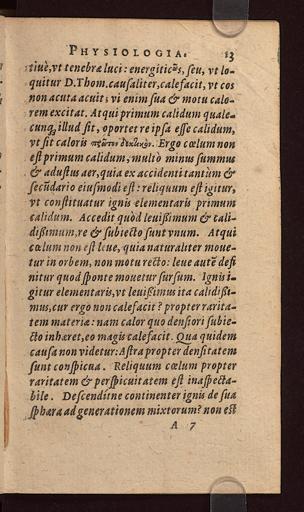 PHYSIOLOGIA. 13
tiuè, vt tenebræ luci: energiticῶs, seu, vt lo-
quitur D. Thom. causaliter, calefacit, vt cos
non acuta acuit; vi enim sua & motu calo-
rem excitat. Atqui primum calidum quale-
cunq; illud sit, oportet re ipsa esse calidum,
vt sit caloris πρῶτον δεκτικὸν. Ergo cœlum non
est primum calidum, multò minus summus
& adustus aer, quia ex accidenti tantùm &
secūdario eiusmodi est: reliquum est igitur,
vt constituatur ignis elementaris primum
calidum. Accedit quòd leuißimum & cali-
dißimum, re & subiecto sunt vnum. Atqui
cœlum non est leue, quia naturaliter moue-
tur in orbem, non motu recto: leue autē defi
nitur quod sponte mouetur sursum. Ignis i-
gitur elementaris, vt leuißimus ita calidißi-
mus, cur ergo non calefacit? propter rarita-
tem materiæ: nam calor quo densiori subie-
cto inhæret, eo magis calefacit. Qua quidem
causa non videtur: Astra propter densitatem
sunt conspicua. Reliquum cœlum propter
raritatem & perspicuitatem est inaspecta-
bile. Descenditne continenter ignis de sua
sphæra ad generationem mixtorum? non est
A 7